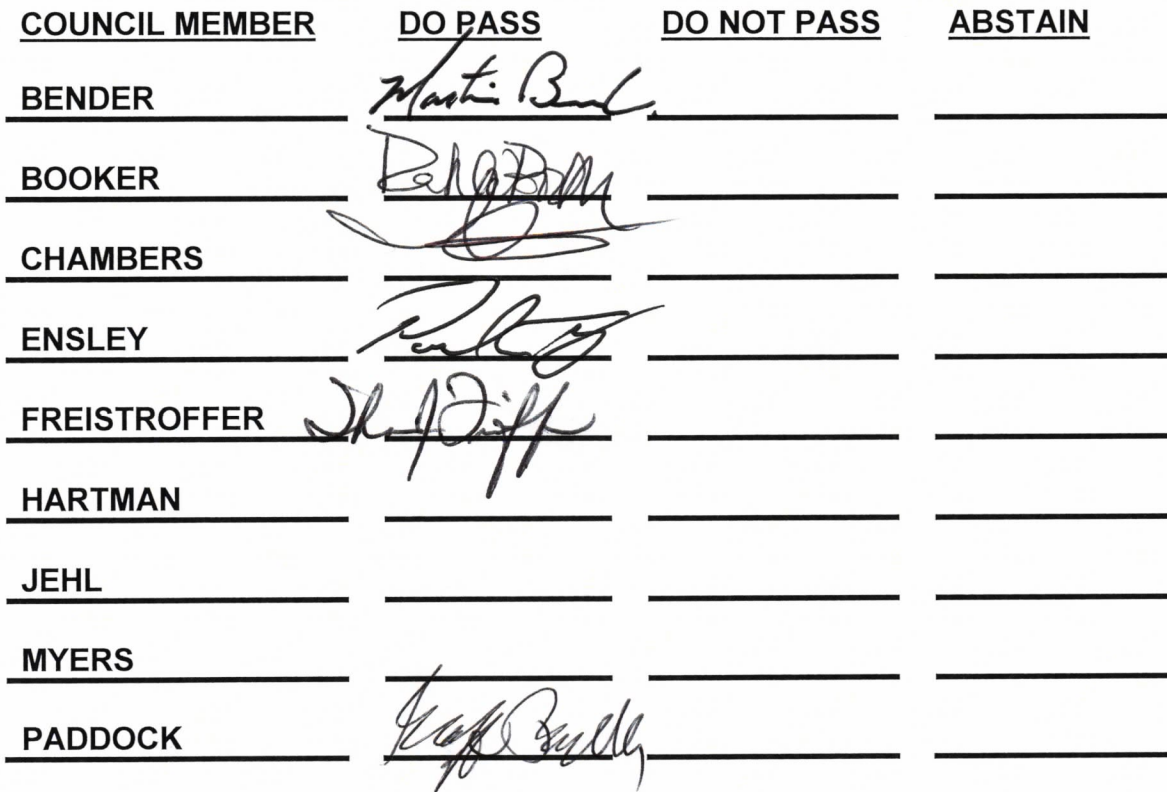 COUNCIL MEMBER DO PASS DO NOT PASS ABSTAIN
BENDER Martin Bend
BOOKER
CHAMBERS
ENSLEY
FREISTROFFER
HARTMAN
JEHL
MYERS
PADDOCK